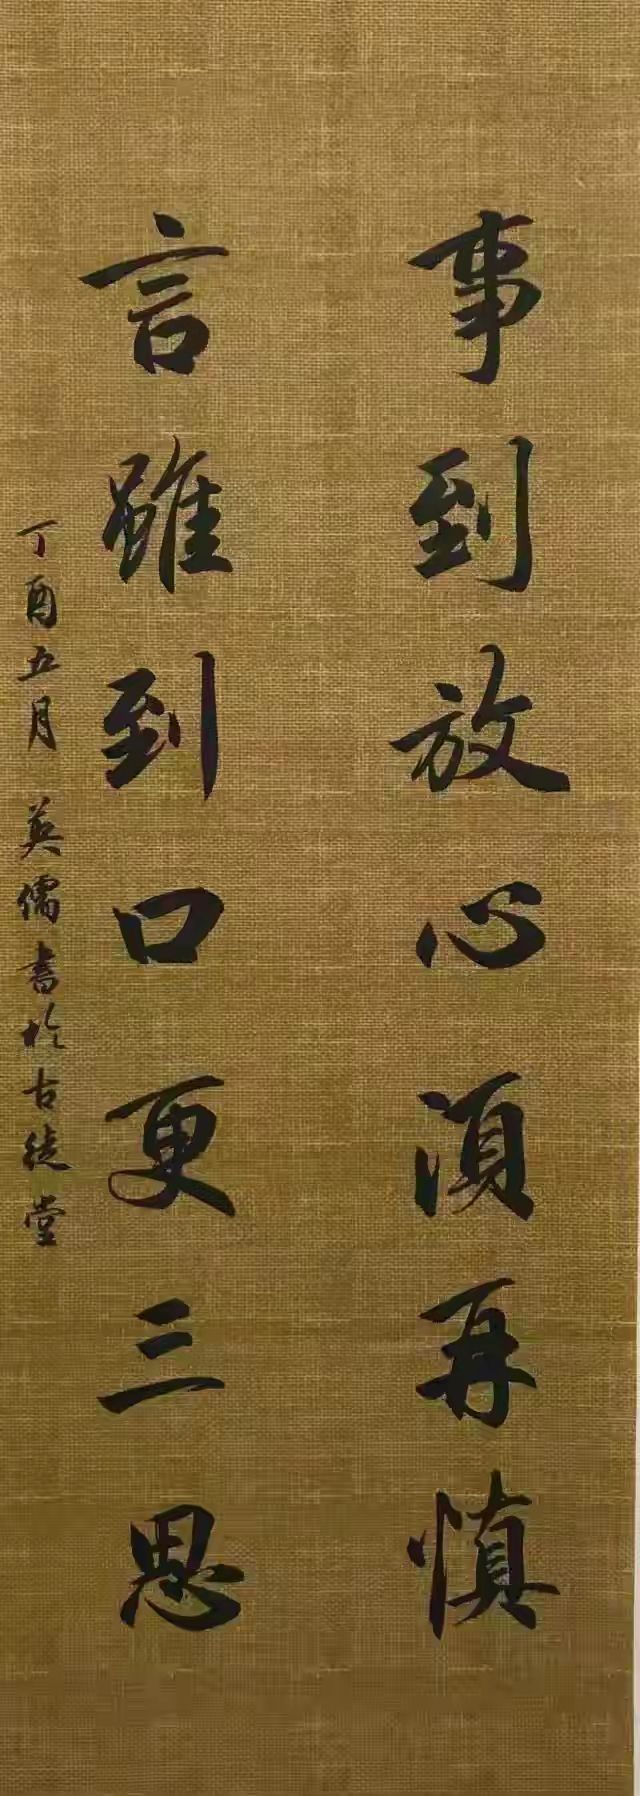 事到放心须再慎
言雖到口更三思
丁酉五月 英儒書於古徒堂